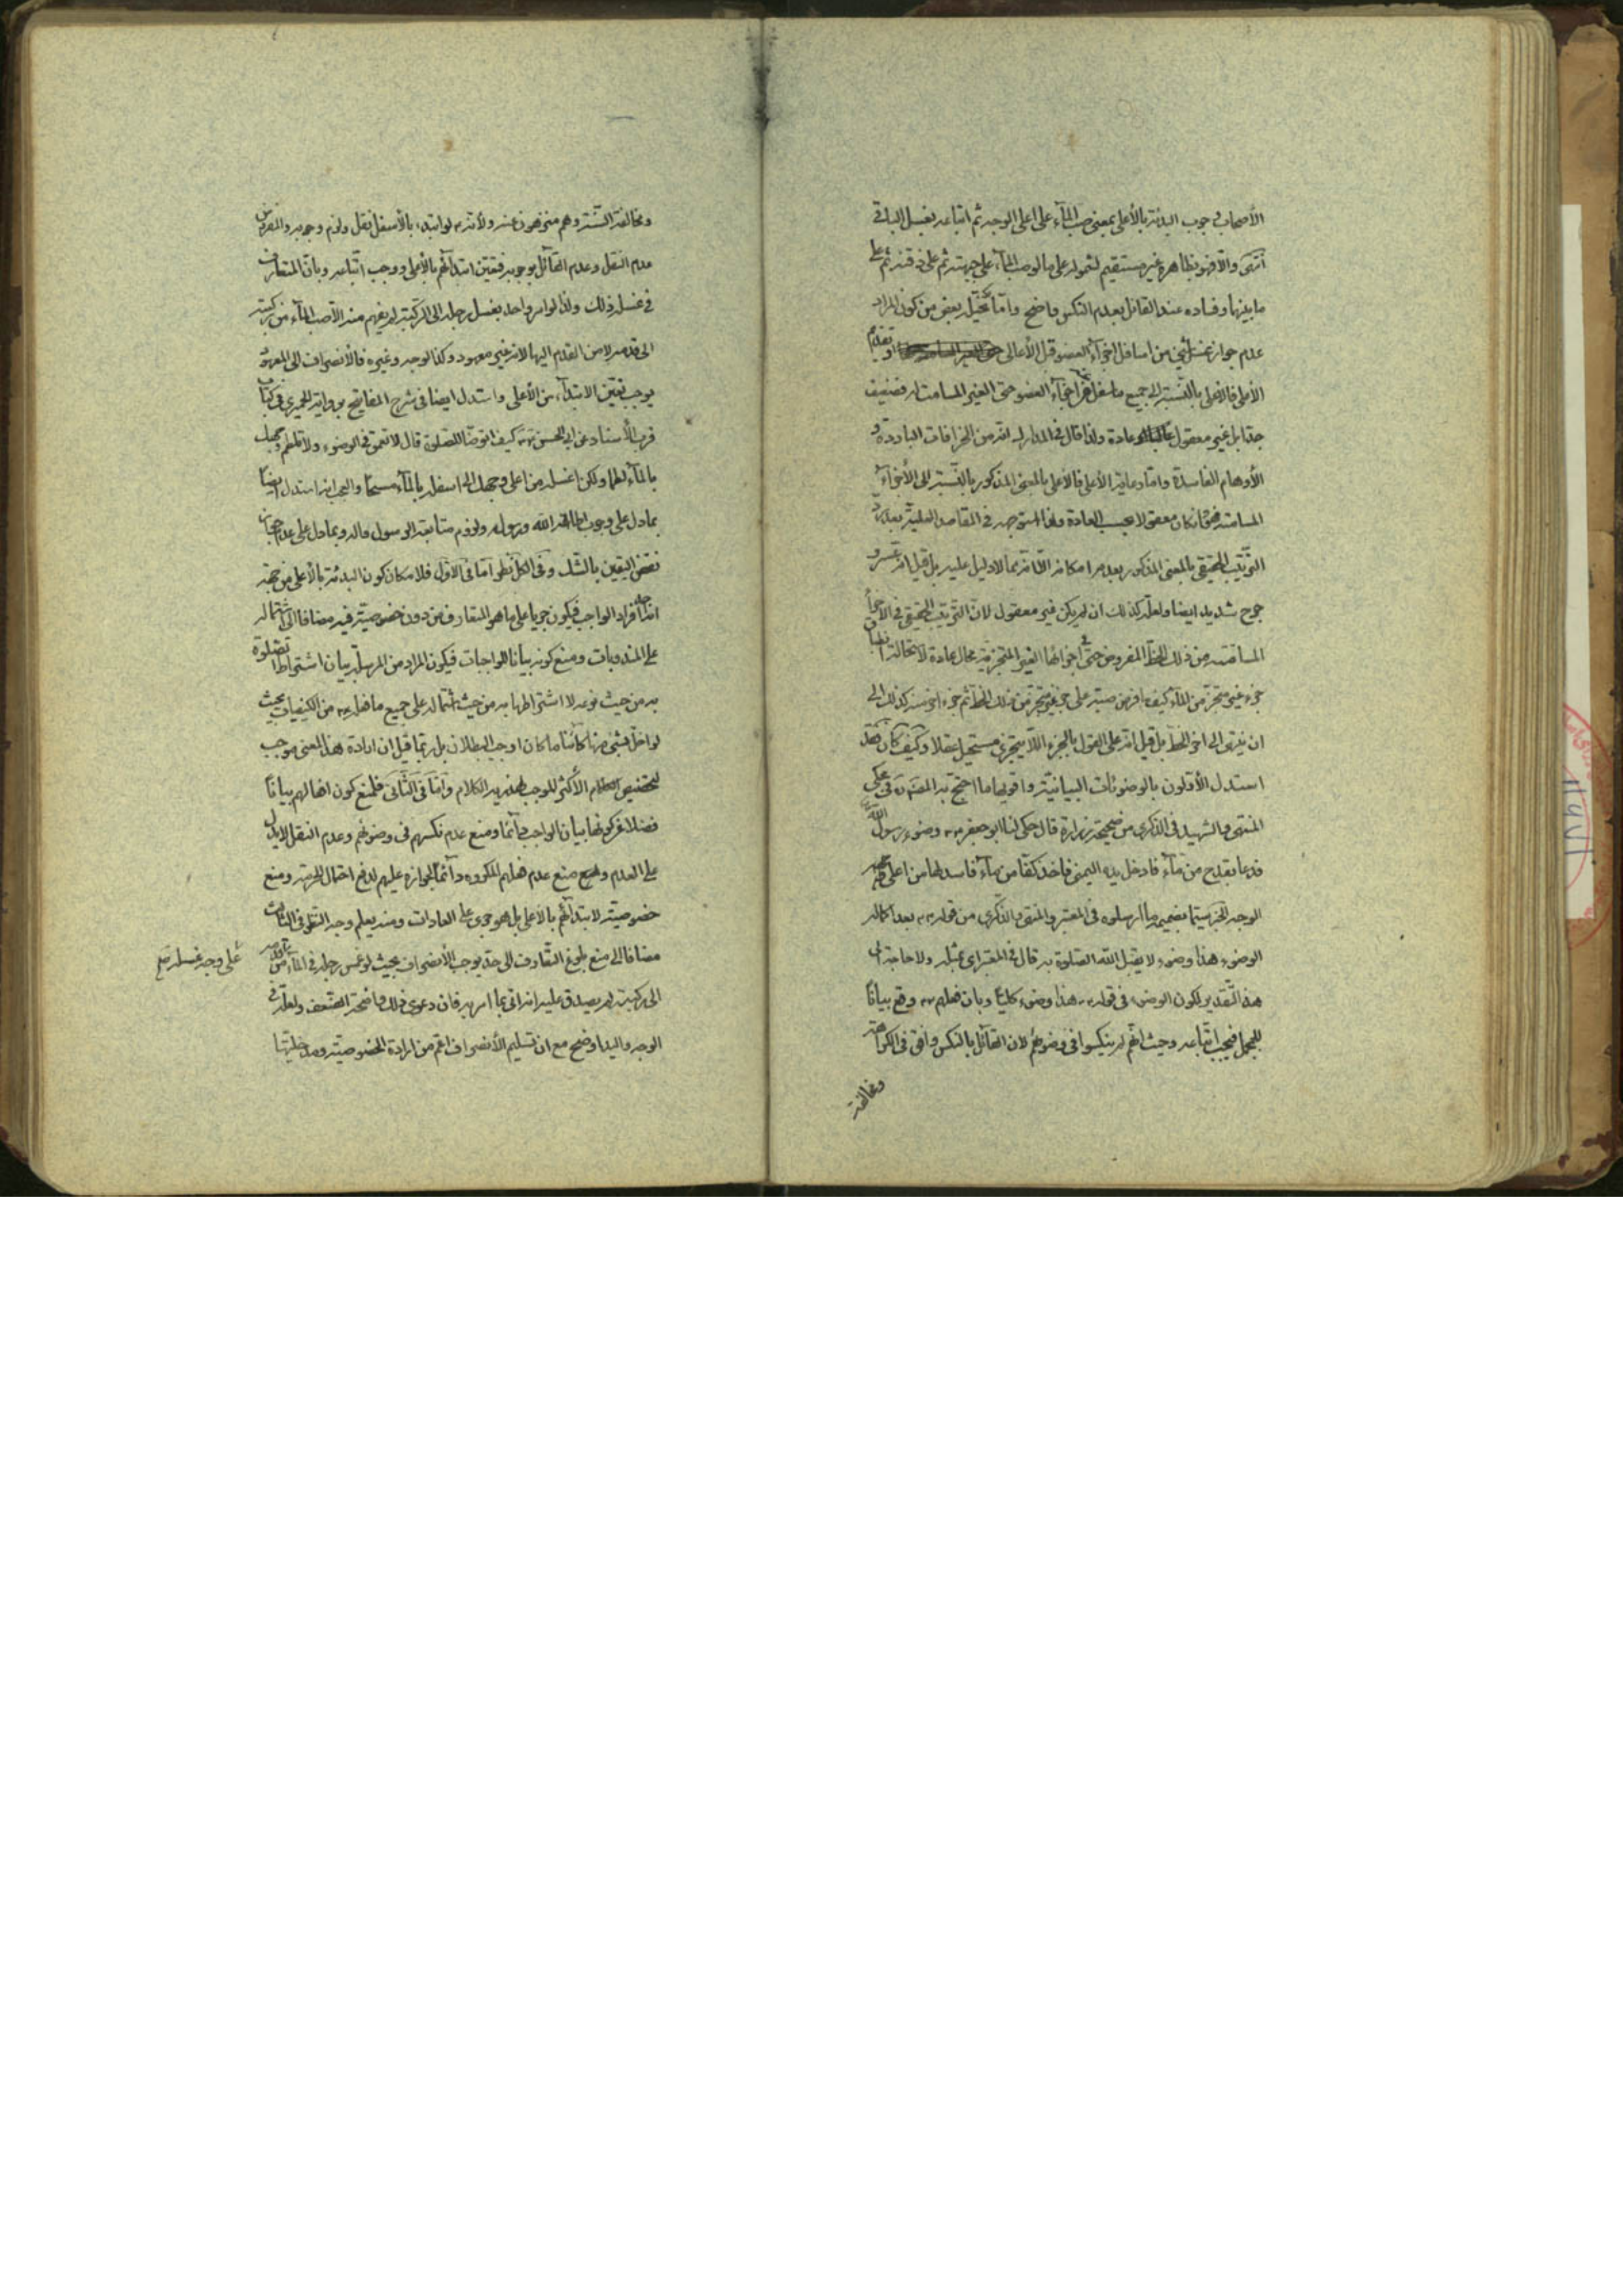 الأصحاب وجوب البدئة بالأعلى بمعنى صب المآء على اعلى الوجه ثم اتباعه بغسل الباقي
انتهى والا فهو بظاهره غير مستقيم لشموله على ما لو صب المآء على جبهته ثم على ذقنه ثم على
ما بينهما وفساده عند القائل بعدم النكس واضح واما تخيل بعض من كون المراد
عدم جواز غسل شيء من اسافل اجزآء العضو قبل الأعالى او تقديم
الأعلى فالاعلى بالنسبة الى جميع ما سفل من اجزآء العضو حتى الغير المسامت له فضعيف
جدا بل غير معقول عادة ولذا قال في المدارك انه من الخرافات الباردة و
الأوهام الفاسدة واما رعاية الأعلى فالأعلى بالمعنى المذكور بالنسبة الى الأجزآء
المسامتة فهو وان كان معقولا بحسب العادة ولذا في المقاصد العلية بعد
الترتيب الحقيقي بالمعنى المذكور بعدم امكانه الا انه مما لا دليل عليه بل قيل انه عسر و
حرج شديد ايضا ولعله كذلك ان لم يكن غير معقول لان الترتيب الحقيقي في الأجزآء
المسامتة من ذلك الخط المفروض حتى في اجزائها الغير المتجزية محال عادة لاستحالة انطباق
جزء غير متجز من المآء كيف ما فرض صبه على جزء غير متجز من ذلك الخط ثم جزء اخر منه كذلك الى
ان ينتهى الى اخر الخط بل قيل انه على القول بالجزء الذى لا يتجزى مستحيل عقلا وكيف كان فقد
استدل الأولون بالوضوئات البيانية واقويها ما احتج به المصنف ره في محكى
المنتهى والشهيد في الذكرى من صحيحة زرارة قال حكى لنا ابو جعفر ع وضوء رسول الله
فدعا بقدح من مآء فادخل يده اليمنى فاخذ كفا من مآء فاسدلها من اعلى وجهه
الوجه الخبر سيما بضميمة ما ارسلوه في المعتبر والمنتهى والذكرى من قوله ع بعد اكماله
الوضوء هذا وضوء لا يقبل الله الصلوة الا به قال في المعتبر اى بمثله ولا حاجة الى
هذا التقدير لكون الوضوء في قوله ع هذا وضوء كليا وبان فعلهم ع وقع بيانا
للمجمل فيجب اتباعه وحيث انهم لم ينكسوا في وضوئهم لان القائل بالنكس وافق في الكراهة
ومخالفة
ومخالفة السنة وهم منزهون عنه ولأنه ع لو ابتدء بالأسفل لنقل ولزم وجوبه والمفروض
عدم النقل وعدم القآئل بوجوبه فيتعين ابتدآئهم بالأعلى ووجب اتباعه وبان المتعارف
في غسله ذلك ولذا لو امر واحد بغسل رجله الى الركبة لم يفهم منه الا صب المآء من ركبته
الى قدمه لا من القدم اليها لانه غير معهود وكذا الوجه وغيره فالأنصراف الى المعهود
يوجب تعين الابتدآء من الأعلى واستدل ايضا في شرح المفاتيح برواية الحميرى في كتاب
قرب الأسناد عن ابى الحسن ع كيف اتوضأ للصلوة قال لا تعمق في الوضوء ولا تلطم وجهك
بالمآء لطما ولكن اغسله من اعلى وجهك الى اسفله بالمآء مسحا والعجب انه استدل ايضا
بما دل على وجوب اطاعة الله ورسوله ولزوم متابعة الرسول واله وبما دل على عدم جواز
نقض اليقين بالشك وفى الكل نظر اما فى الأول فلامكان كون البدئة بالأعلى من جهة
انه احد افراد الواجب فيكون جريا على ما هو المتعارف من دون خصوصية فيه مضافا الى اشتماله
على المندوبات ومنع كونه بيانا للواجبات فيكون المراد من المرسلة بيان اشتراط الصلوة
به من حيث نوعه لا اشتراطها به من حيث اشتماله على جميع ما فعله ع من الكيفيات بحيث
لو اخل بشئ منها كائنا ما كان اوجب البطلان بل ربما قيل ان ارادة هذا المعنى موجب
لتخصيص الأكثر الموجب لتهذيب الكلام واما فى الثانى فلمنع كون افعالهم بيانا
فضلا عن كونها بيان الواجب دآئما ومنع عدم نكسهم فى وضوئهم وعدم النقل لا يدل
على العدم ومنع عدم فعلهم المكروه دآئما لجوازه عليهم لدفع احتمال الحرمة ومنع
خصوصية لابتدآئهم بالأعلى بل هو جرى على العادات ومنه يعلم وجه النظر فى الثالث
مضافا الى منع بلوغ التعارف الى حد يوجب الأنصراف بحيث لو غمس رجله في المآء من
الى ركبته لم يصدق عليه انه اتى بما امر به فان دعوى ذلك واضحة الضعف ولعله فى
الوجه واليد اوضح مع ان تسليم الأنصراف اعم من ارادة الخصوصية ومدخليتها
على وجه غسله صح